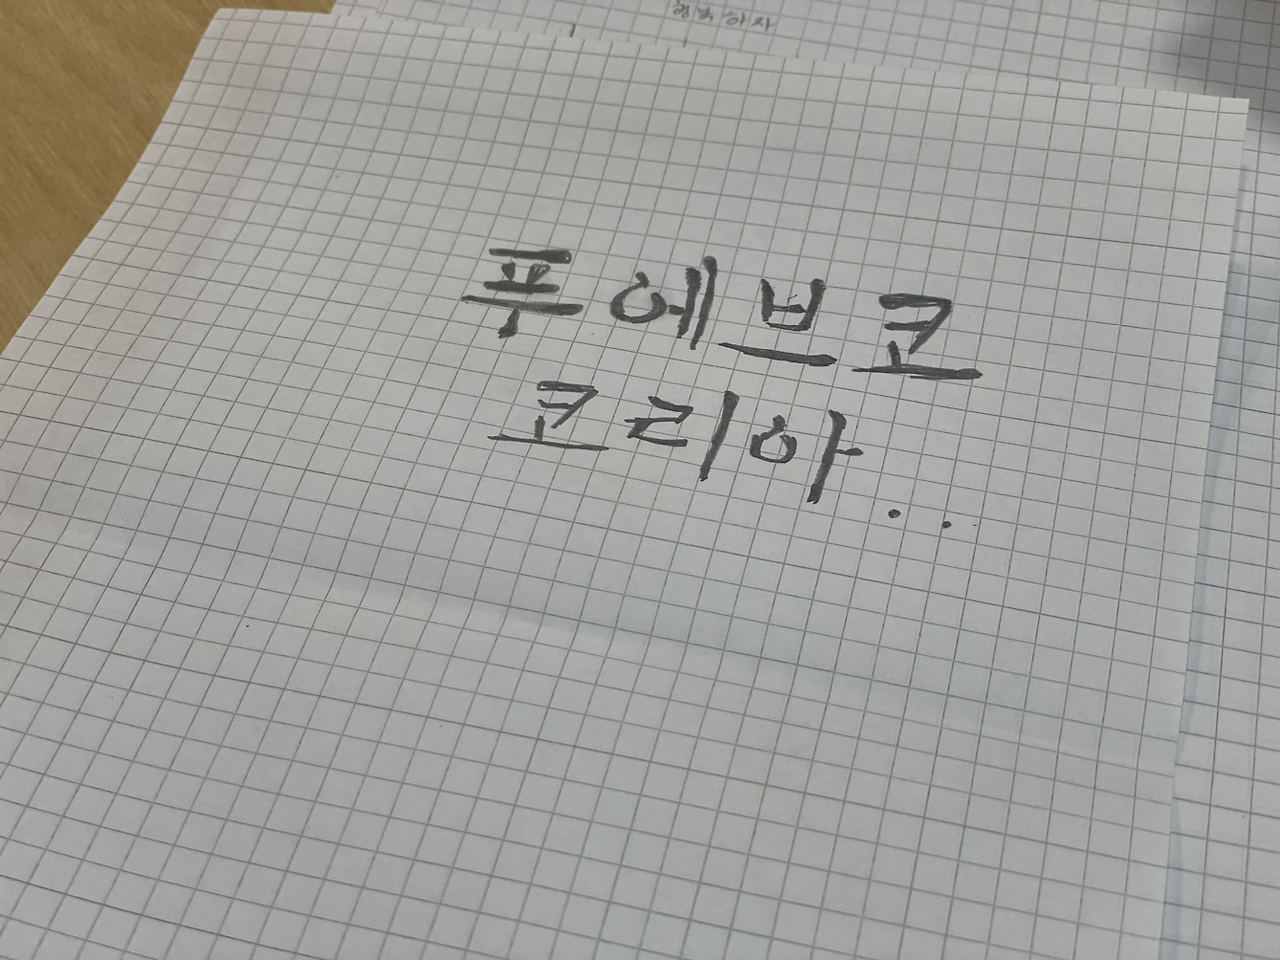 행복하자
푸에브코
코리아..